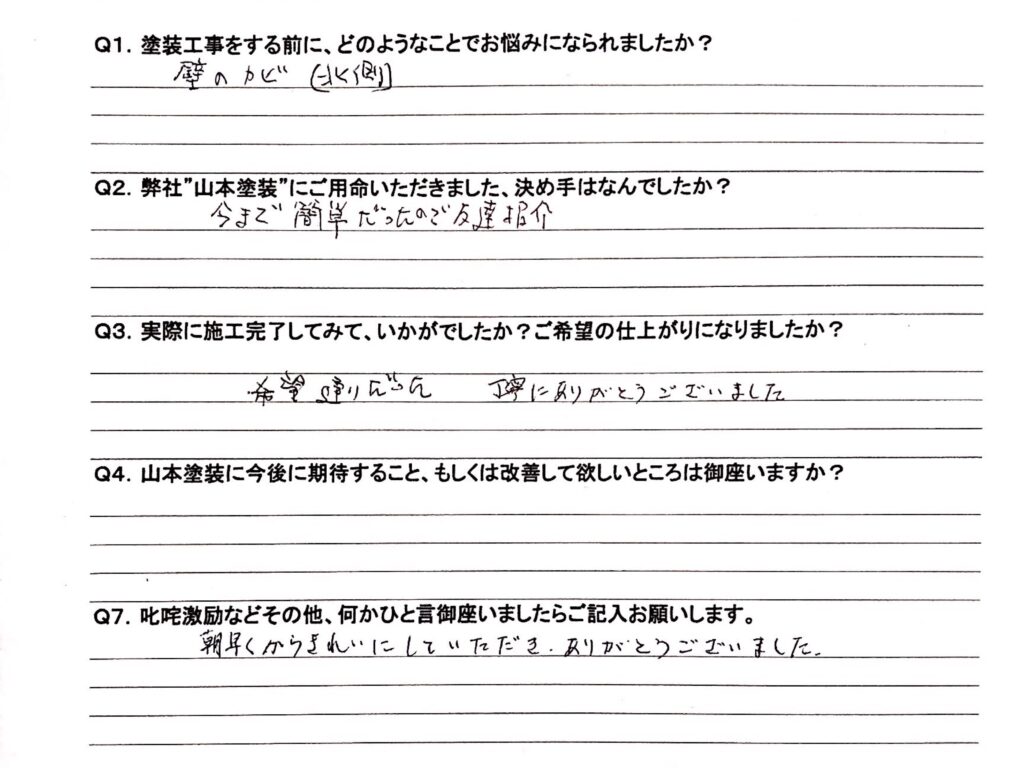 Q1. 塗装工事をする前に、どのようなことでお悩みになられましたか?
壁のカビ (北側)
Q2. 弊社"山本塗装"にご用命いただきました、決め手はなんでしたか?
今まで簡単だったので友達紹介
Q3. 実際に施工完了してみて、いかがでしたか?ご希望の仕上がりになりましたか?
希望通りだった 丁寧にありがとうございました
Q4. 山本塗装に今後に期待すること、もしくは改善して欲しいところは御座いますか?
Q7. 叱咤激励などその他、何かひと言御座いましたらご記入お願いします。
朝早くからきれいにしていただき、ありがとうございました.